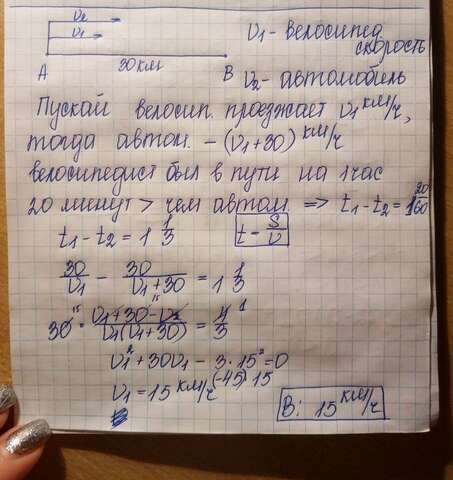 V2
V1
A 30 км B
V1 - велосипед
скорость
V2 - автомобиль
Пускай велосип. проезжает V1 км/ч,
тогда автом. - (V1+30) км/ч
велосипедист был в пути на 1 час
20 минут > чем автом. => t1 - t2 = 1 20/60
t1 - t2 = 1 1/3 t = S/V
30/V1 - 30/(V1+30) = 1 1/3
30 · (V1+30-V1)/(V1(V1+30)) = 4/3
V1² + 30V1 - 3·15² = 0
V1 = 15 км/ч (-45) 15
В: 15 км/ч